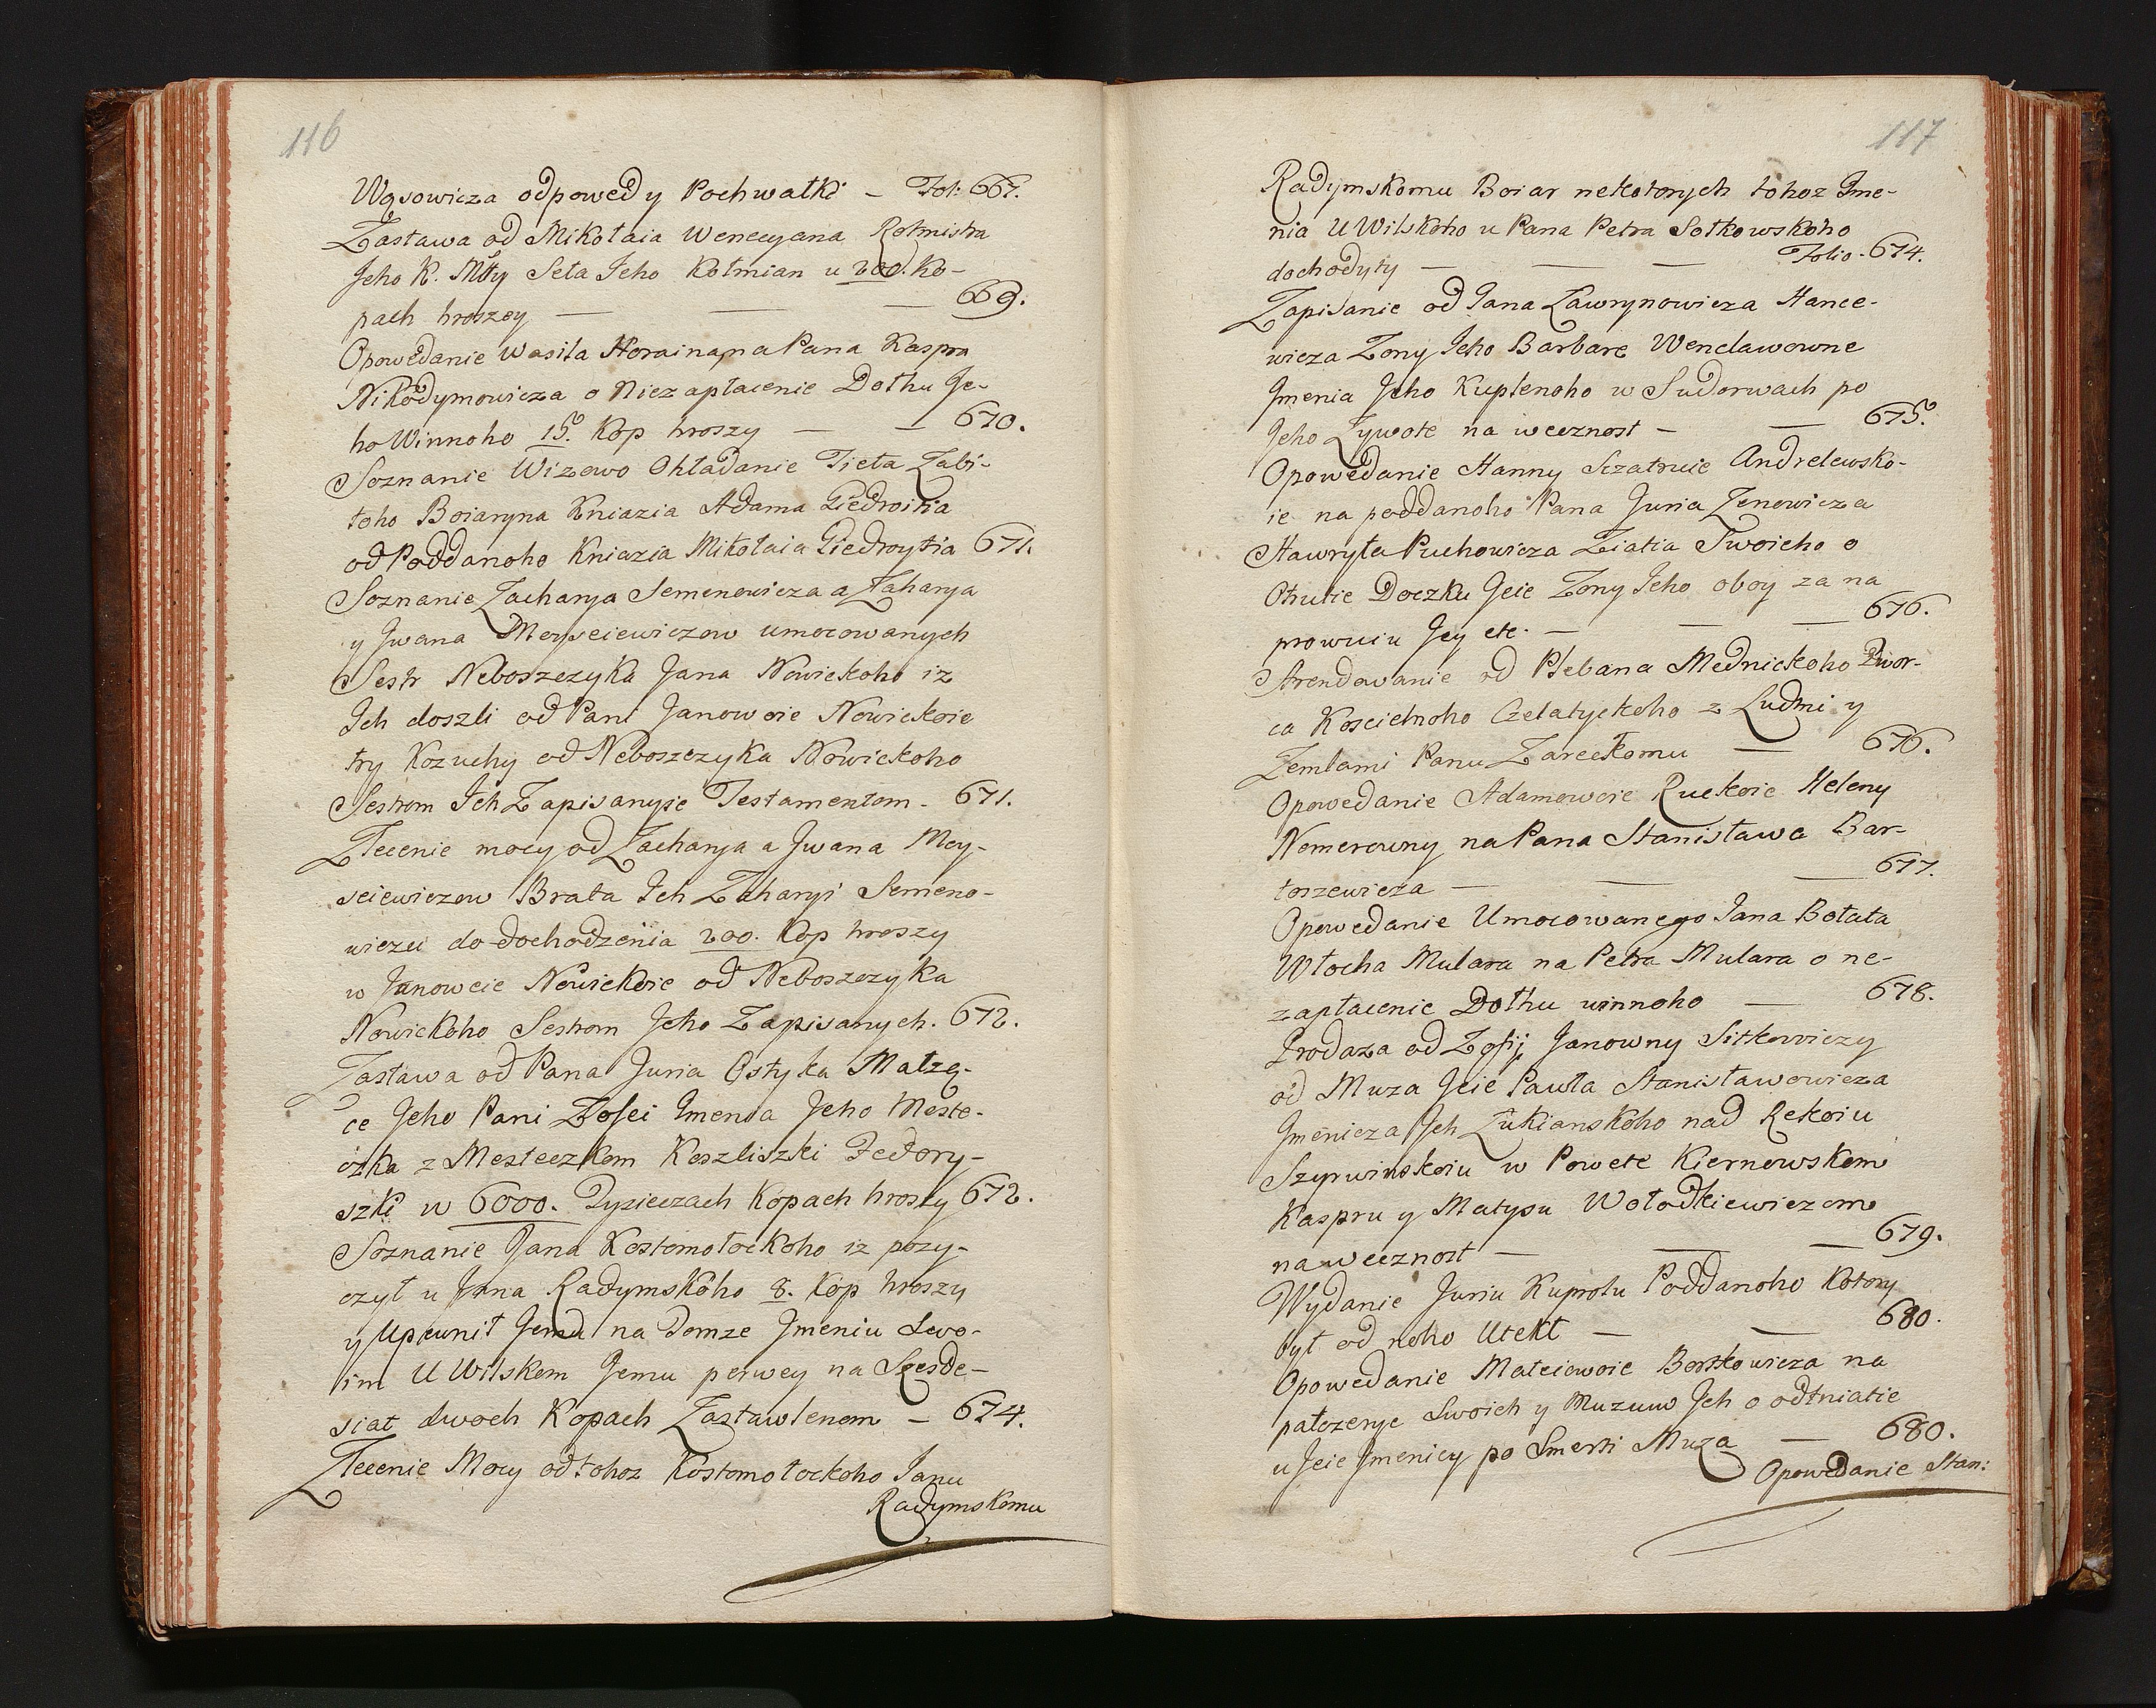 116
Wąsowicza odpowedy Pochwałki — Fol: 667.
Zastawa od Mikołaia Wenecyana Rotmistra
Jeho K. Mtty Seła Jeho Kołmian u 200. Ko-
pach hroszey — — — 669.
Opowedanie Wasila Horaina na Pana Kaspra
Nikodymowicza o Niezapłacenie Dołhu Je-
ho Winnoho 15. Kop hroszy — — 670.
Soznanie Wizowo Ohladanie Tieła Zabi-
toho Boiaryna Kniazia Adama Giedroitia
od Poddanoho Kniazia Mikołaia Giedroytia 671.
Soznanie Zacharya Semenowicza a Zaharya
y Jwana Meysciewiczow umocowanych
Sestr Neboszczyka Jana Nowickoho iz
Jch doszli od Pani Janowoie Nowickoie
try Kozuchy od Neboszczyka Nowickoho
Sestrom Jch Zapisanyie Testamentom - 671.
Zlecenie mocy od Zacharya a Jwana Mey-
sciewiczow Brata Jch Zacharyi Semeno-
wiczu do dochodzenia 200. Kop hroszy
w Janoweie Nowickoie od Neboszczyka
Nowickoho Sestrom Jcho Zapisanych. 672.
Zastawa od Pana Juria Ostyka Małżą-
ce Jeho Pani Zofei Jmenia Jeho Meste-
czka z Mesteczkom Koszliszki Fedory-
szki w 6000. Tysieczach Kopach hroszy 672.
Soznanie Jana Kostomołockoho iz pozy-
czył u Jana Radymskoho 8. Kop hroszy
y Upewnił Jemu na Tomze Jmeniu Swo-
im U Wilskom Jemu perwey na Szesde-
siat dwoch Kopach Zastawlenom — 674.
Zlecenie Mocy od tohoz Kostomołockoho Janu
Radymskomu
117
Radymskomu Boiar nekotorych tohoz Jme-
nia U Wilskoho u Pana Petra Sołkowskoho
dochodyty — — — Folio - 674.
Zapisanie od Jana Ławrynowicza Hance-
wicza Zony Jeho Barbare Wencławowne
Jmenia Jeho Kuplenoho w Sudorwach po
Jeho Zywote na wecznost — — 675.
Opowedanie Hanny Andrelewsko-
ie na poddanoho Pana Juria Zenowicza
Hawryła Puchowicza Ziatia Swoieho o
Otrutie Doczku Jeie Zony Jeho oboy za na
prowuiu Jey etc. — — — 676.
Arendowanie od Plebana Mednickoho Dwor-
ca Koscielnoho Czelatyckoho z Ludmi y
Zemlami Panu Zareckomu — 676.
Opowedanie Adamowoie Ruckoie Heleny
Nemerowny na Pana Stanisława Bar-
toszewicza — — — 677.
Opowedanie Umocowanego Jana Botata
Włocha Mulara na Petra Mulara o ne-
zapłacenie Dołhu winnoho — 678.
Prodaza od Zofij Janowny Sitkowiczy
od Muza Jeie Pawła Stanisławowicza
Jmenicza Jch Łukianskoho nad Rekoiu
Szyrwinskoiu w Powete Kiernowskom
Kaspru y Matysu Wołodkiewiczom
na wecznost — — — 679.
Wydanie Juriu Kuprolu Poddanoho Kotory
był od noho Utekł — — 680.
Opowedanie Mateiowoie Borkowicza na
patczeryc Swoich y Muzuw Jch o odtniatie
u Jeie Jmenicy po Smerti Muza — 680.
Opowedanie Stan: